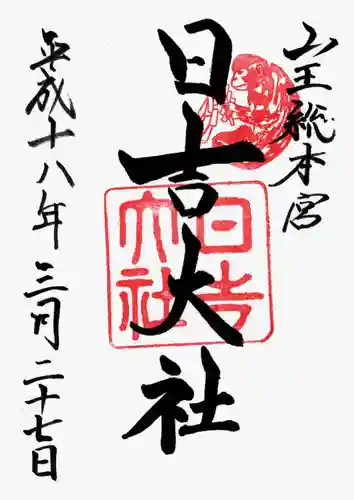 山王総本宮
日吉大社
日吉大社
平成十八年三月二十七日